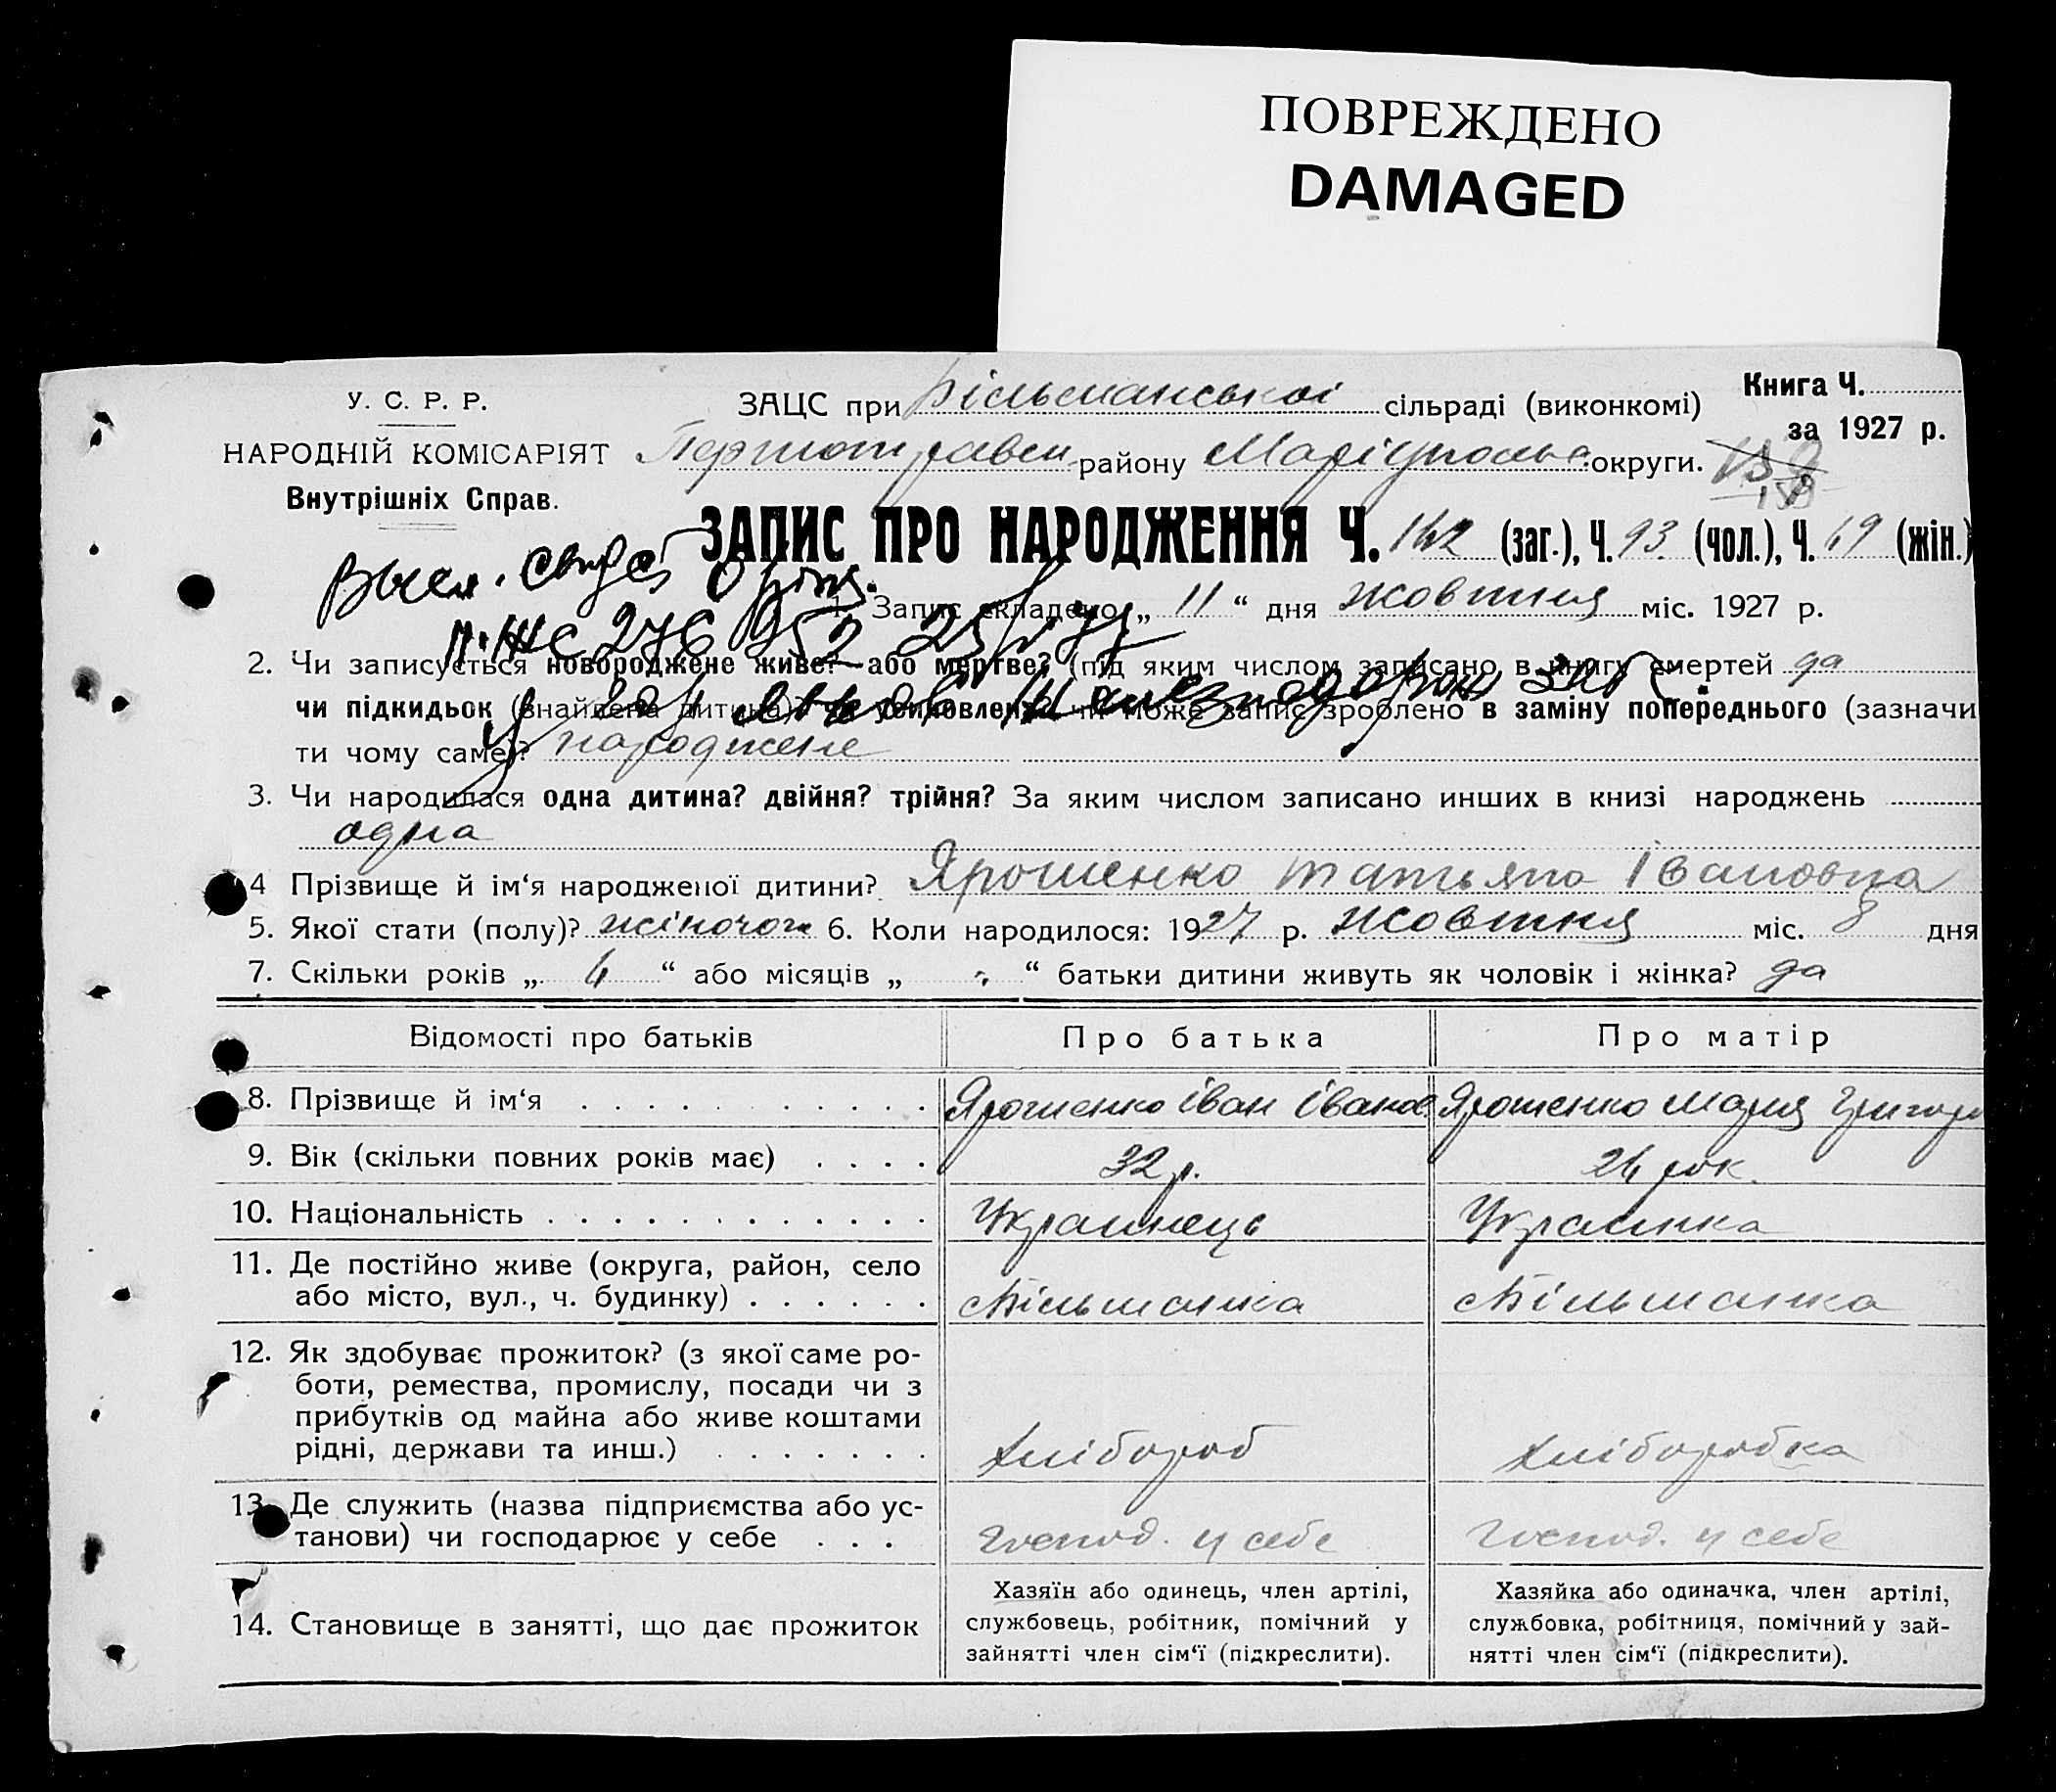 ПОВРЕЖДЕНО
DAMAGED
У. С. Р. Р.
НАРОДНІЙ КОМІСАРІЯТ
Внутрішніх Справ.
ЗАЦС при Більманської сільраді (виконкомі)
району Маріупольс округи.
Книга Ч.
за 1927 р.
ЗАПИС ПРО НАРОДЖЕННЯ Ч. 162 (заг.), Ч. 93 (чол.), Ч. 69 (жін.)
1. Запис складено „ 11 “ дня жовтня міс. 1927 р.
2. Чи записується новороджене живе? або мертве? (під яким числом записано в книгу смертей да
чи підкидьок (знайдена дитина), чи усиновлення чи може запис зроблено в заміну попереднього (зазначи
ти чому саме)? народжене
3. Чи народилася одна дитина? двійня? трійня? За яким числом записано инших в книзі народжень
одна
4 Прізвище й ім‘я народженої дитини? Ярошенко Татьяна Івановна
5. Якої стати (полу)? жіночої 6. Коли народилося: 1927 р. жовтня міс. 8 дня
7. Скільки років „ 6 “ або місяців „ “ батьки дитини живуть як чоловік і жінка? да
Відомості про батьків Про батька Про матір
8. Прізвище й ім‘я Ярошенко Іван Іванов Ярошенко Мария Григор
9. Вік (скільки повних років має) 32 р. 26 рок.
10. Національність Украинець Украинка
11. Де постійно живе (округа, район, село
або місто, вул., ч. будинку) Більманка Більманка
12. Як здобуває прожиток? (з якої саме ро-
боти, ремества, промислу, посади чи з
прибутків од майна або живе коштами
рідні, держави та инш.) Хлібороб Хліборобка
13. Де служить (назва підприємства або ус-
танови) чи господарює у себе Господ. у себе Господ. у себе
14. Становище в занятті, що дає прожиток
Хазяїн або одинець, член артілі,
службовець, робітник, помічний у
зайнятті член сім‘ї (підкреслити).
Хазяйка або одиначка, член артілі,
службовка, робітниця, помічний у зай-
нятті член сім‘ї (підкреслити).